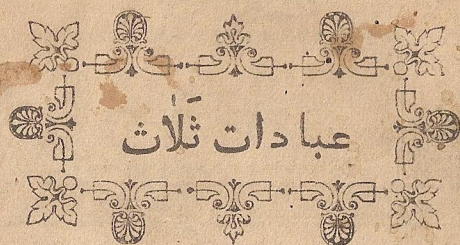 عبادات ثَلٰاث